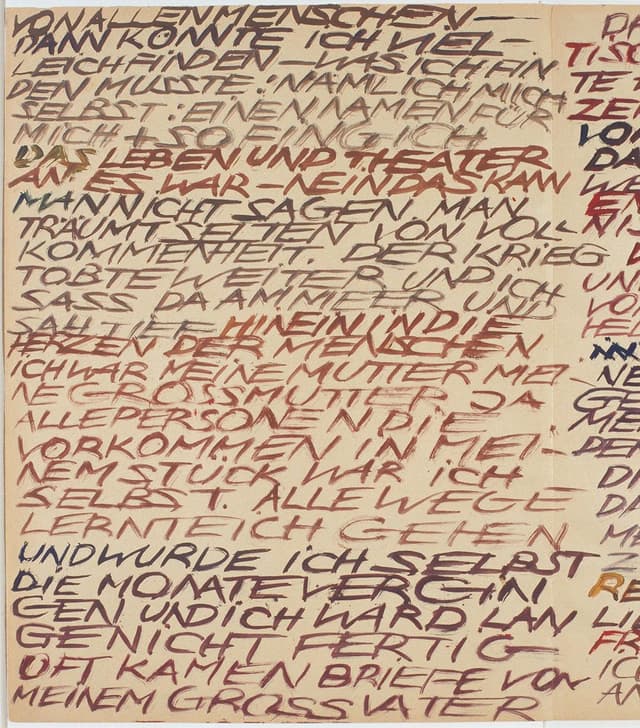 VON ALLEN MENSCHEN —
DANN KÖNNTE ICH VIEL-
LEICH FINDEN — WAS ICH FIN
DEN MUSSTE : NÄMLICH MICH
SELBST : EINEN NAMEN FÜR
MICH + SO FING ICH
DAS LEBEN UND THEATER
AN ES WAR — NEIN DAS KANN
MAN NICHT SAGEN MAN
TRÄUMT SELTEN VON VOLL-
KOMMENHEIT. DER KRIEG
TOBTE WEITER UND ICH
SASS DA AM MEER UND
SAH TIEF HINEIN IN DIE
HERZEN DER MENSCHEN
ICH WAR MEINE MUTTER MEI-
NE GROSSMUTTER JA
ALLE PERSONEN DIE
VORKOMMEN IN MEI-
NEM STÜCK WAR ICH
SELBST. ALLE WEGE
LERNTE ICH GEHEN
UND WURDE ICH SELBST
DIE MONATE VERGIN
GEN UND ICH WARD LAN
GE NICHT FERTIG
OFT KAMEN BRIEFE VON
MEINEM GROSSVATER